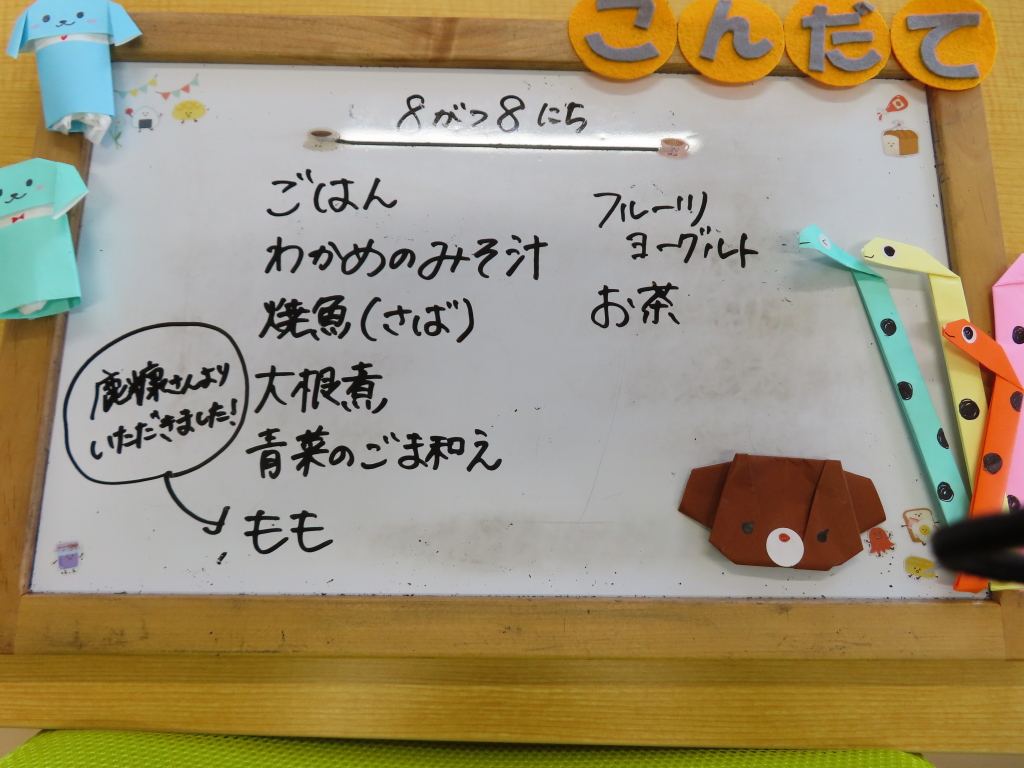 こんだて
8がつ8にち
ごはん
わかめのみそ汁
焼魚(さば)
大根煮
青菜のごま和え
もも
さんより
いただきました!
フルーツ
ヨーグルト
お茶